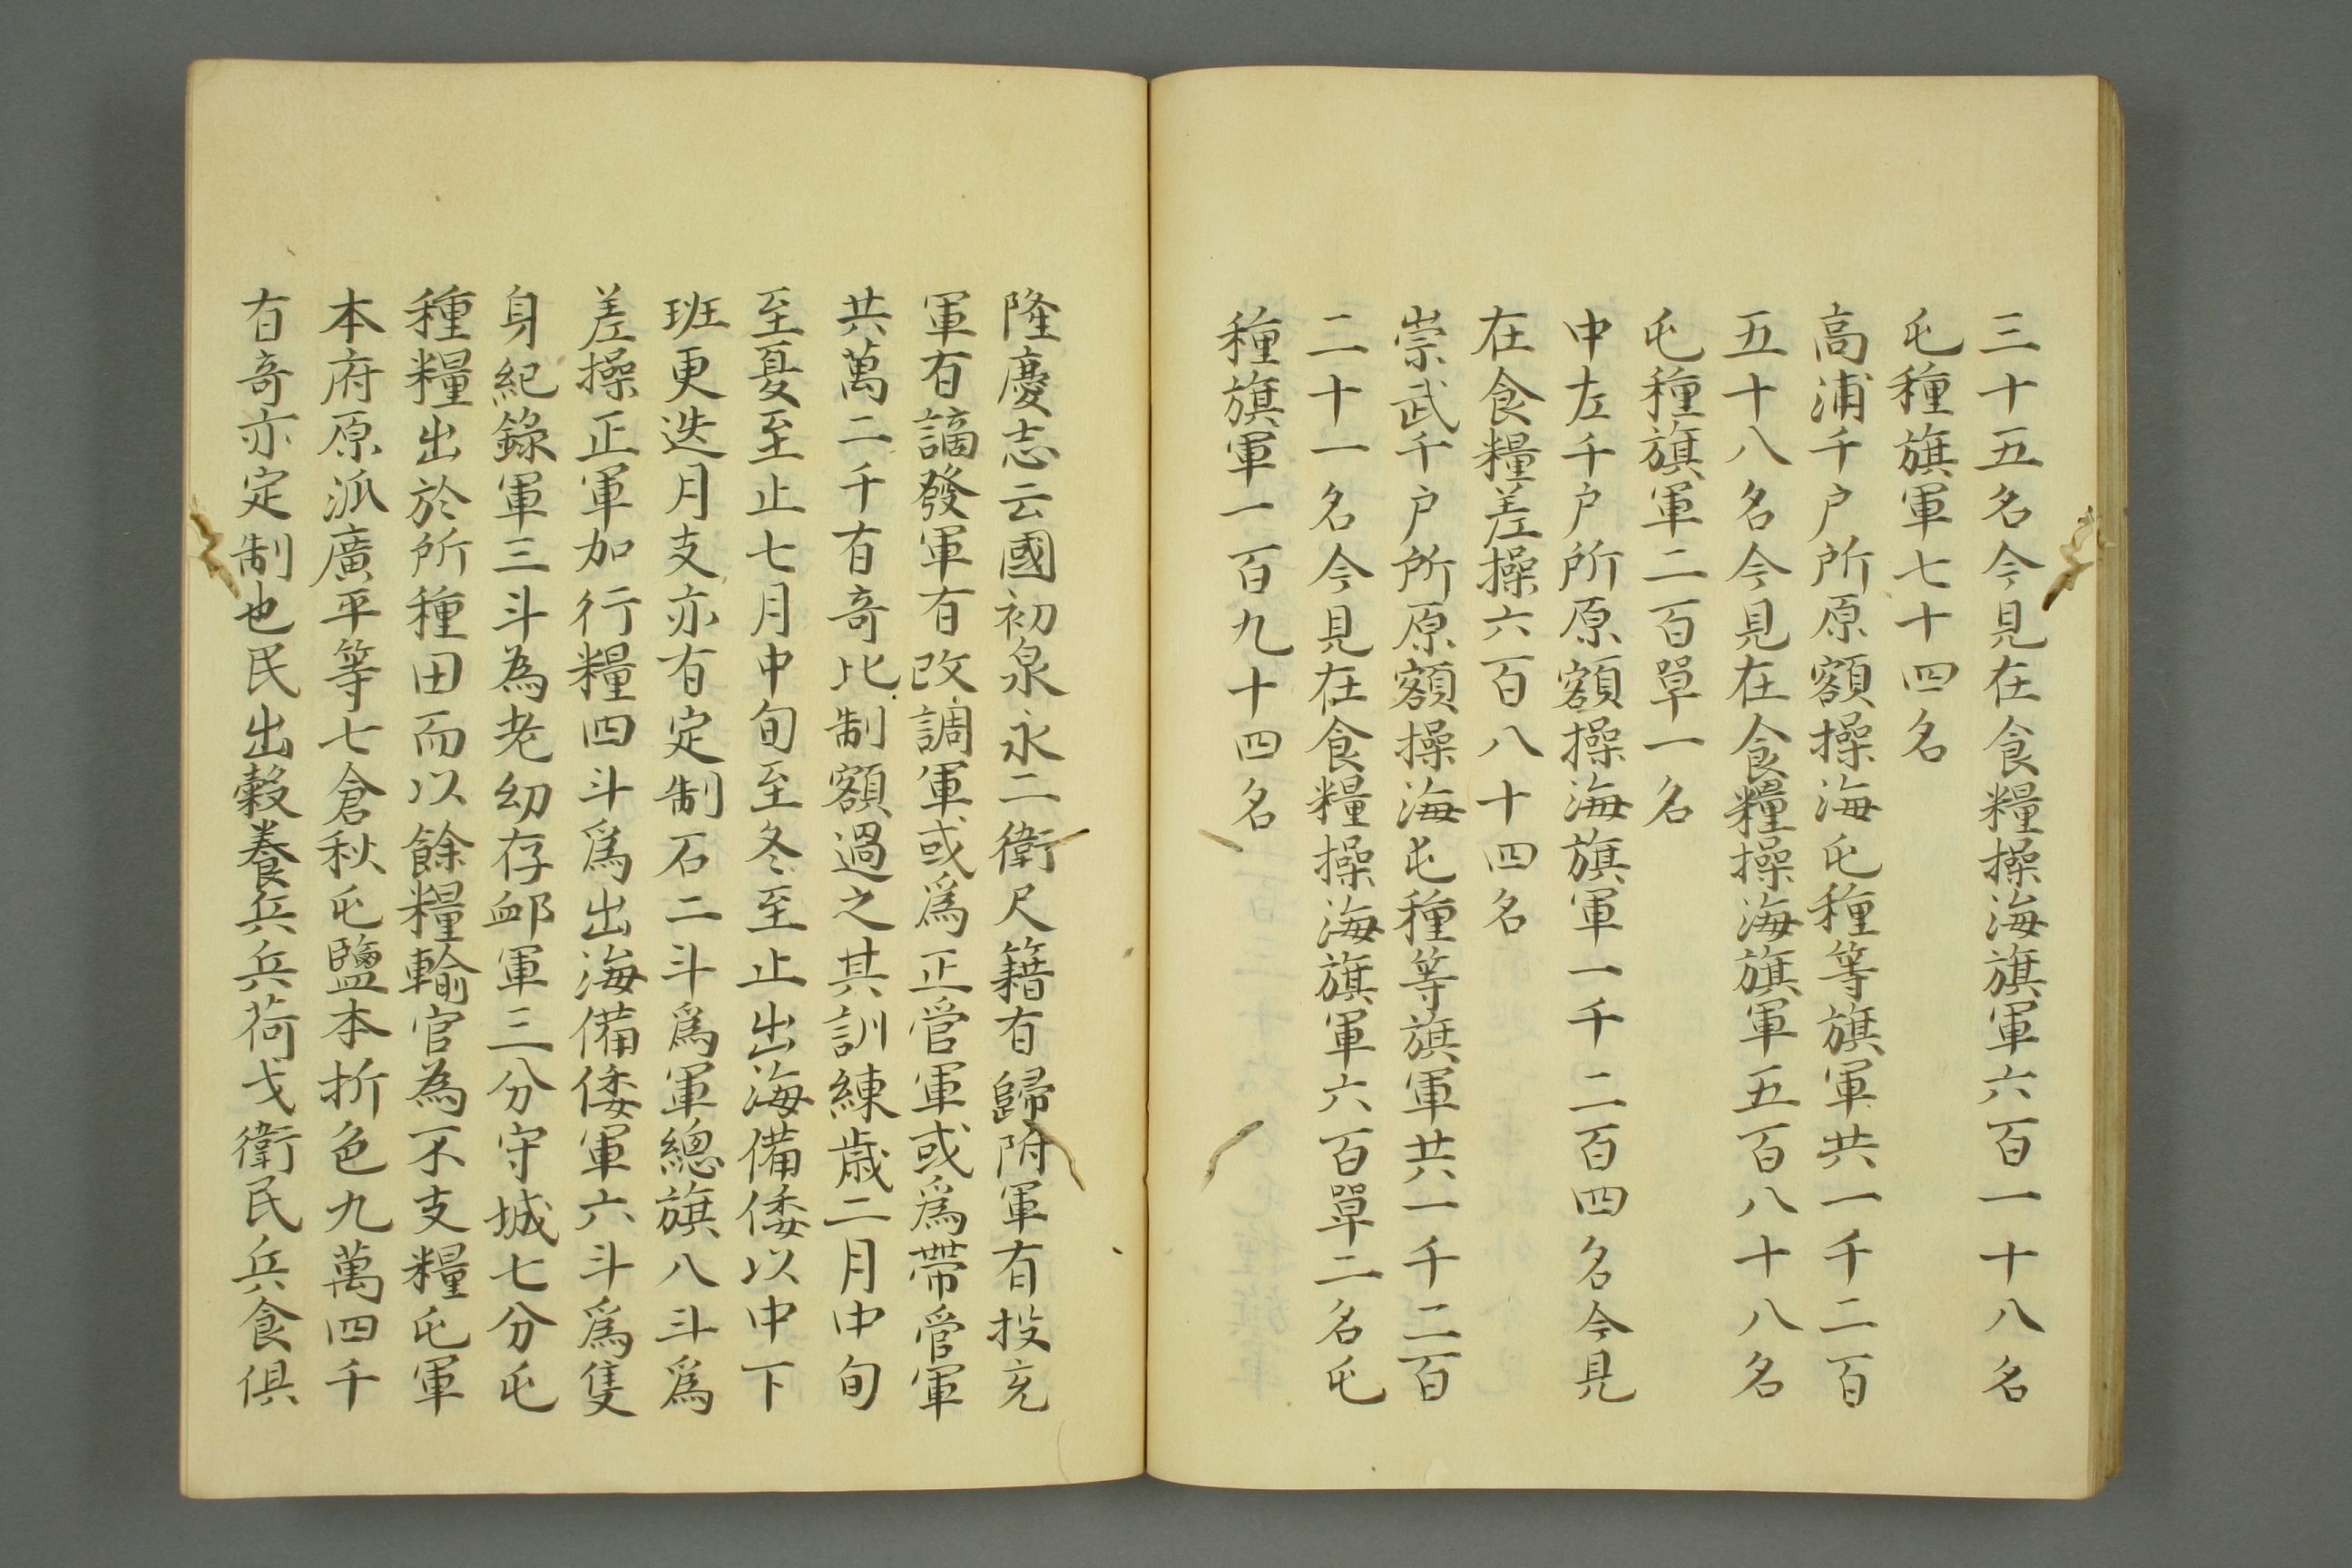 三十五名今見在食糧操海旗軍六百一十八名
屯種旗軍七十四名
高浦千户所原額操海屯種等旗軍共一千二百
五十八名今見在食糧操海旗軍五百八十八名
屯種旗軍二百單一名
中左千户所原額操海旗軍一千二百四名今見
在食糧差操六百八十四名
崇武千户所原額操海屯種等旗軍共一千二百
二十一名今見在食糧操海旗軍六百單二名屯
種旗軍一百九十四名
隆慶志云國初泉永二衛尺籍有歸附軍有投充
軍有謫發軍有改調軍或爲正管軍或爲帶管軍
共萬二千有奇比制額過之其訓練歲二月中旬
至夏至止七月中旬至冬至止出海備倭以中下
班更迭月支亦有定制石二斗爲軍總旗八斗爲
差操正軍加行糧四斗爲出海備倭軍六斗爲隻
身紀錄軍三斗為老幼存邮軍三分守城七分屯
種糧出於所種田而以餘糧輸官為不支糧屯軍
本府原派廣平等七倉秋屯鹽本折色九萬四千
有奇亦定制也民出穀養兵兵荷戈衛民兵食俱